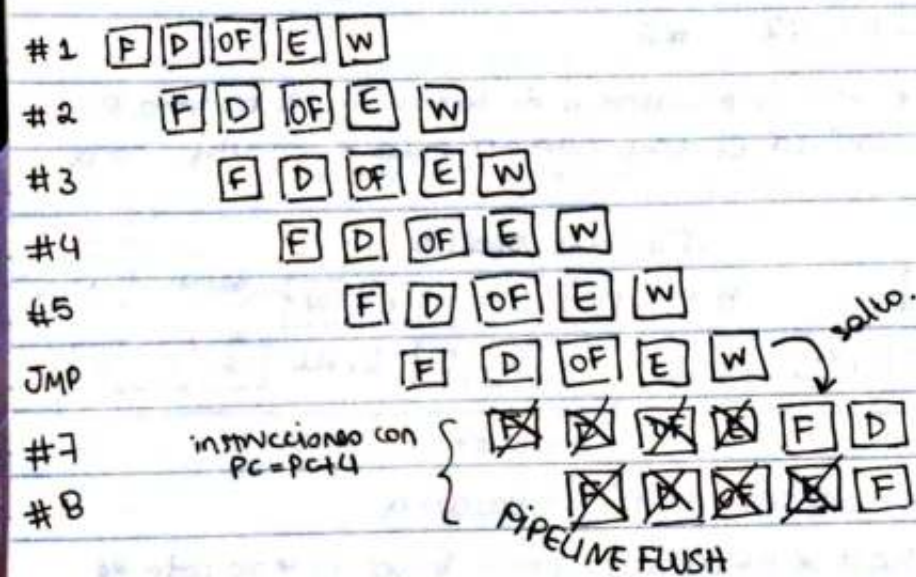 #1 F D OF E W
#2 F D OF E W
#3 F D OF E W
#4 F D OF E W
#5 F D OF E W
JMP F D OF E W salto.
#7 instrucciones con F D OF E F D
PC=PC+4
#8 F D OF E F
PIPELINE FLUSH